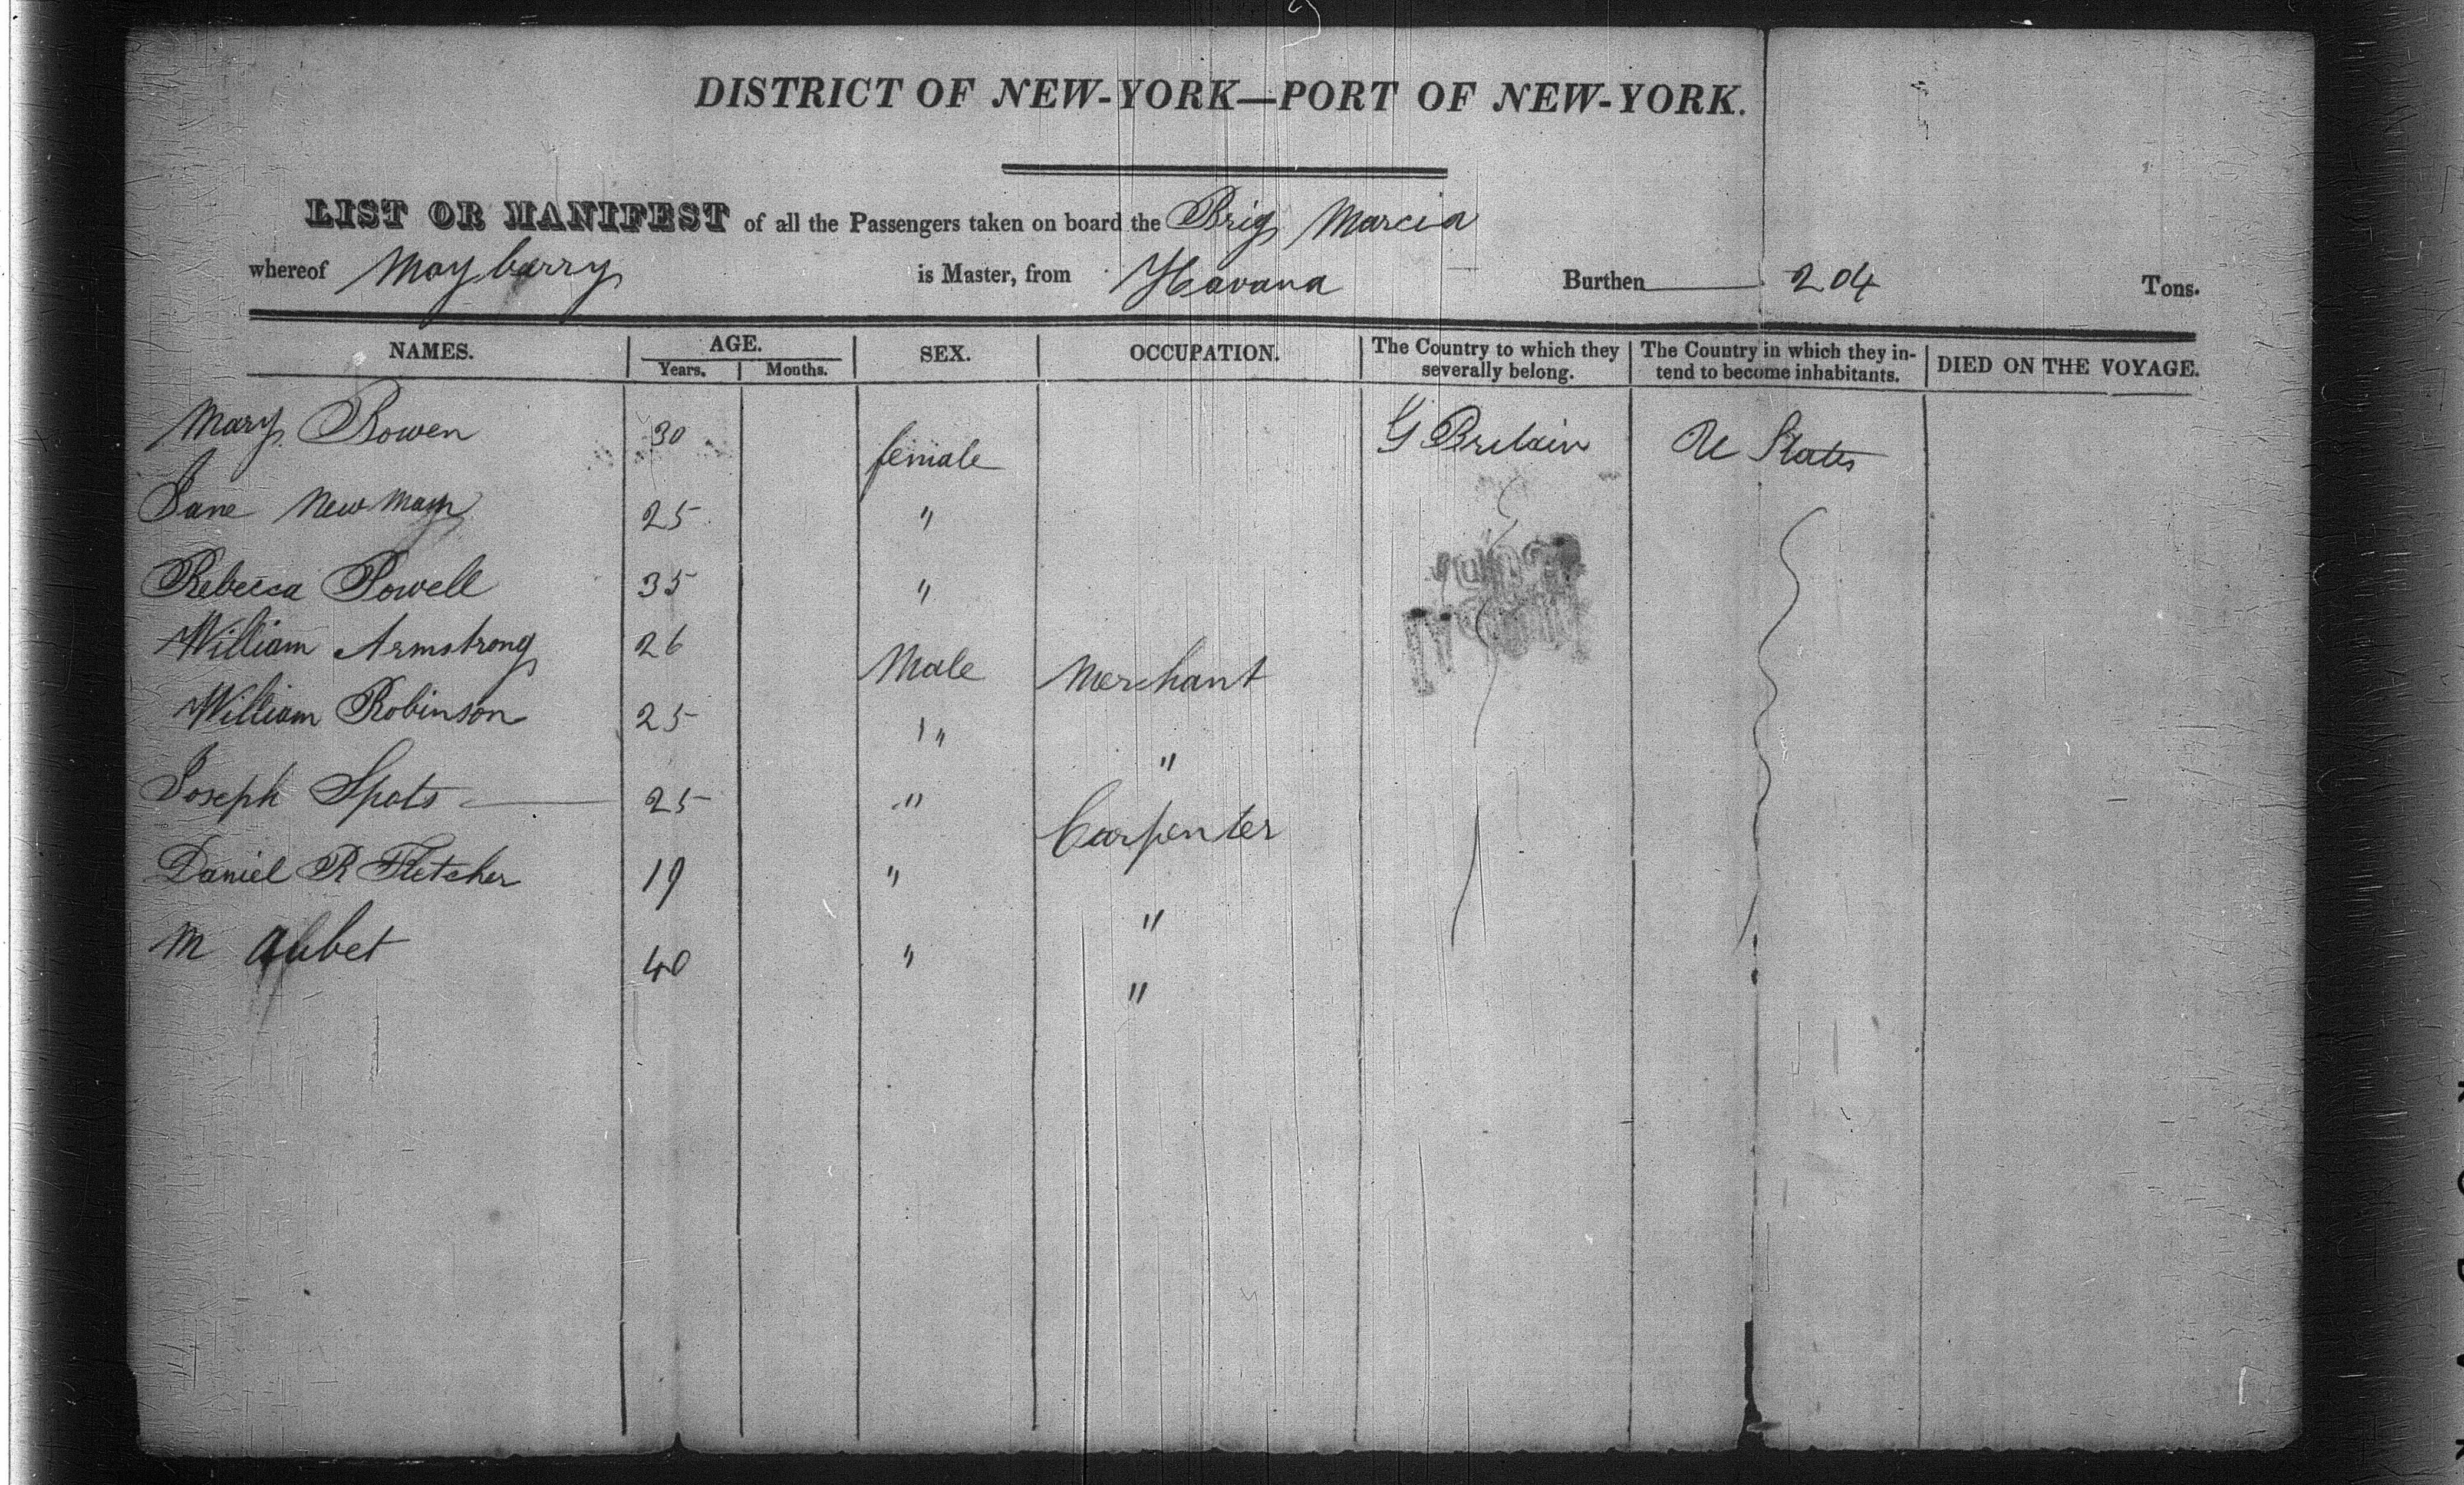 DISTRICT OF NEW-YORK—PORT OF NEW-YORK.
LIST OR MANIFEST of all the Passengers taken on board the Brig Marcia
whereof Mayberry is Master, from Havana Burthen 204 Tons.
NAMES. AGE. SEX. OCCUPATION. The Country to which they severally belong. The Country in which they intend to become inhabitants. DIED ON THE VOYAGE.
Years. Months.
Mary Bowen 30 female G Britain U States
Jane Newman 25 "
Rebecca Powell 35 "
William Armstrong 26 Male Merchant
William Robinson 25 " "
Joseph Spots 25 " Carpenter
Daniel R Fletcher 19 " "
M Aubet 40 " "